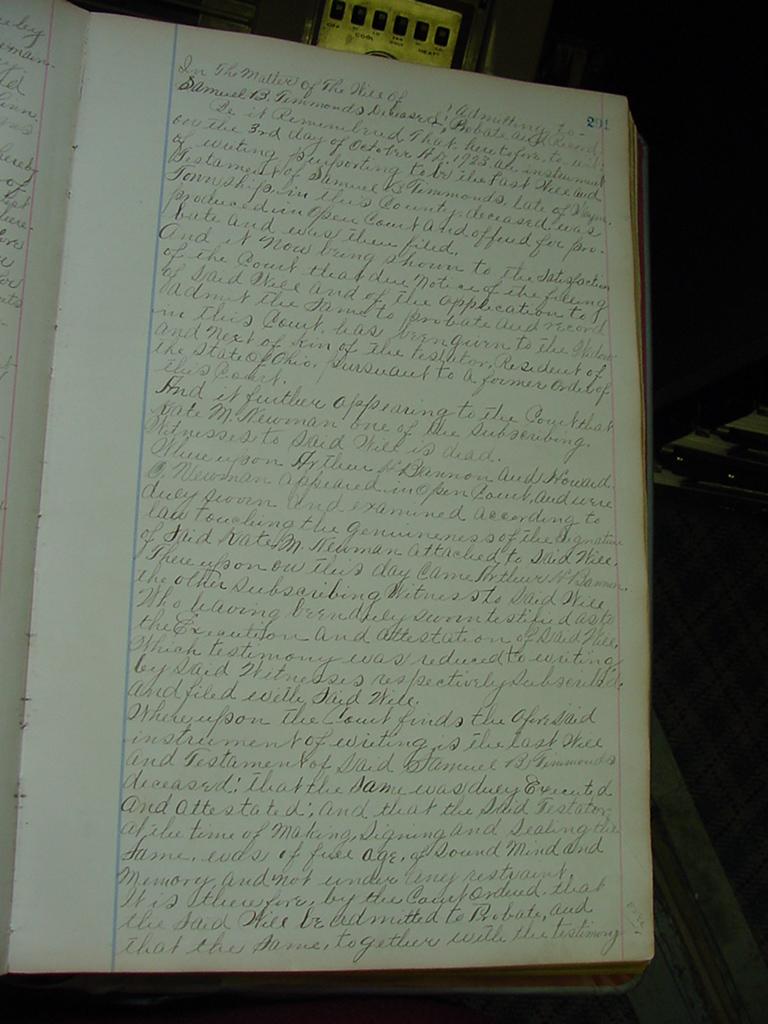 OFF COOL HEAT
291
In The Matter of The Will of
Samuel B. Timmonds Deceased } Admitting to Probate and Record.
Be it Remembered That heretofore, to wit:
on the 3rd day of October A.D. 1923 an instrument
of writing purporting to be the Last Will and
Testament of Samuel B. Timmonds, late of Wayne
Township, in this County, deceased, was
produced in Open Court and offered for pro-
bate and was then filed.
And it Now being shown to the Satisfaction
of the Court that due Notice of the filing
of Said Will and of the application to
admit the Same to probate and record
in this Court, has been given to the Widow
and Next of Kin of the testator, Resident of
the State of Ohio, pursuant to a former Order of
this Court.
And it further appearing to the Court that
Kate M. Newman one of the Subscribing
Witnesses to Said Will is dead.
Where upon Arthur H. Bannon and Howard
C. Newman appeared in Open Court, and were
duly sworn and examined according to
law touching the genuineness of the Signature
of Said Kate M. Newman attached to Said Will.
There upon on this day came Arthur H. Bannon,
the other Subscribing Witness to Said Will
Who having been duly sworn testified as to
the Execution and attestation of Said Will,
Which testimony was reduced to writing
by Said Witnesses respectively Subscribed
and filed with Said Will.
Where upon the Court finds the afore Said
instrument of writing is the last Will
and Testament of Said Samuel B. Timmonds
deceased; that the Same was duly Executed
and attestated; and that the Said Testator
at the time of Making, Signing and Sealing the
Same, was of full age, of Sound Mind and
Memory, and not under any restraint.
It is therefore, by the Court Ordered that
the Said Will be admitted to Probate, and
that the Same, together with the testimony